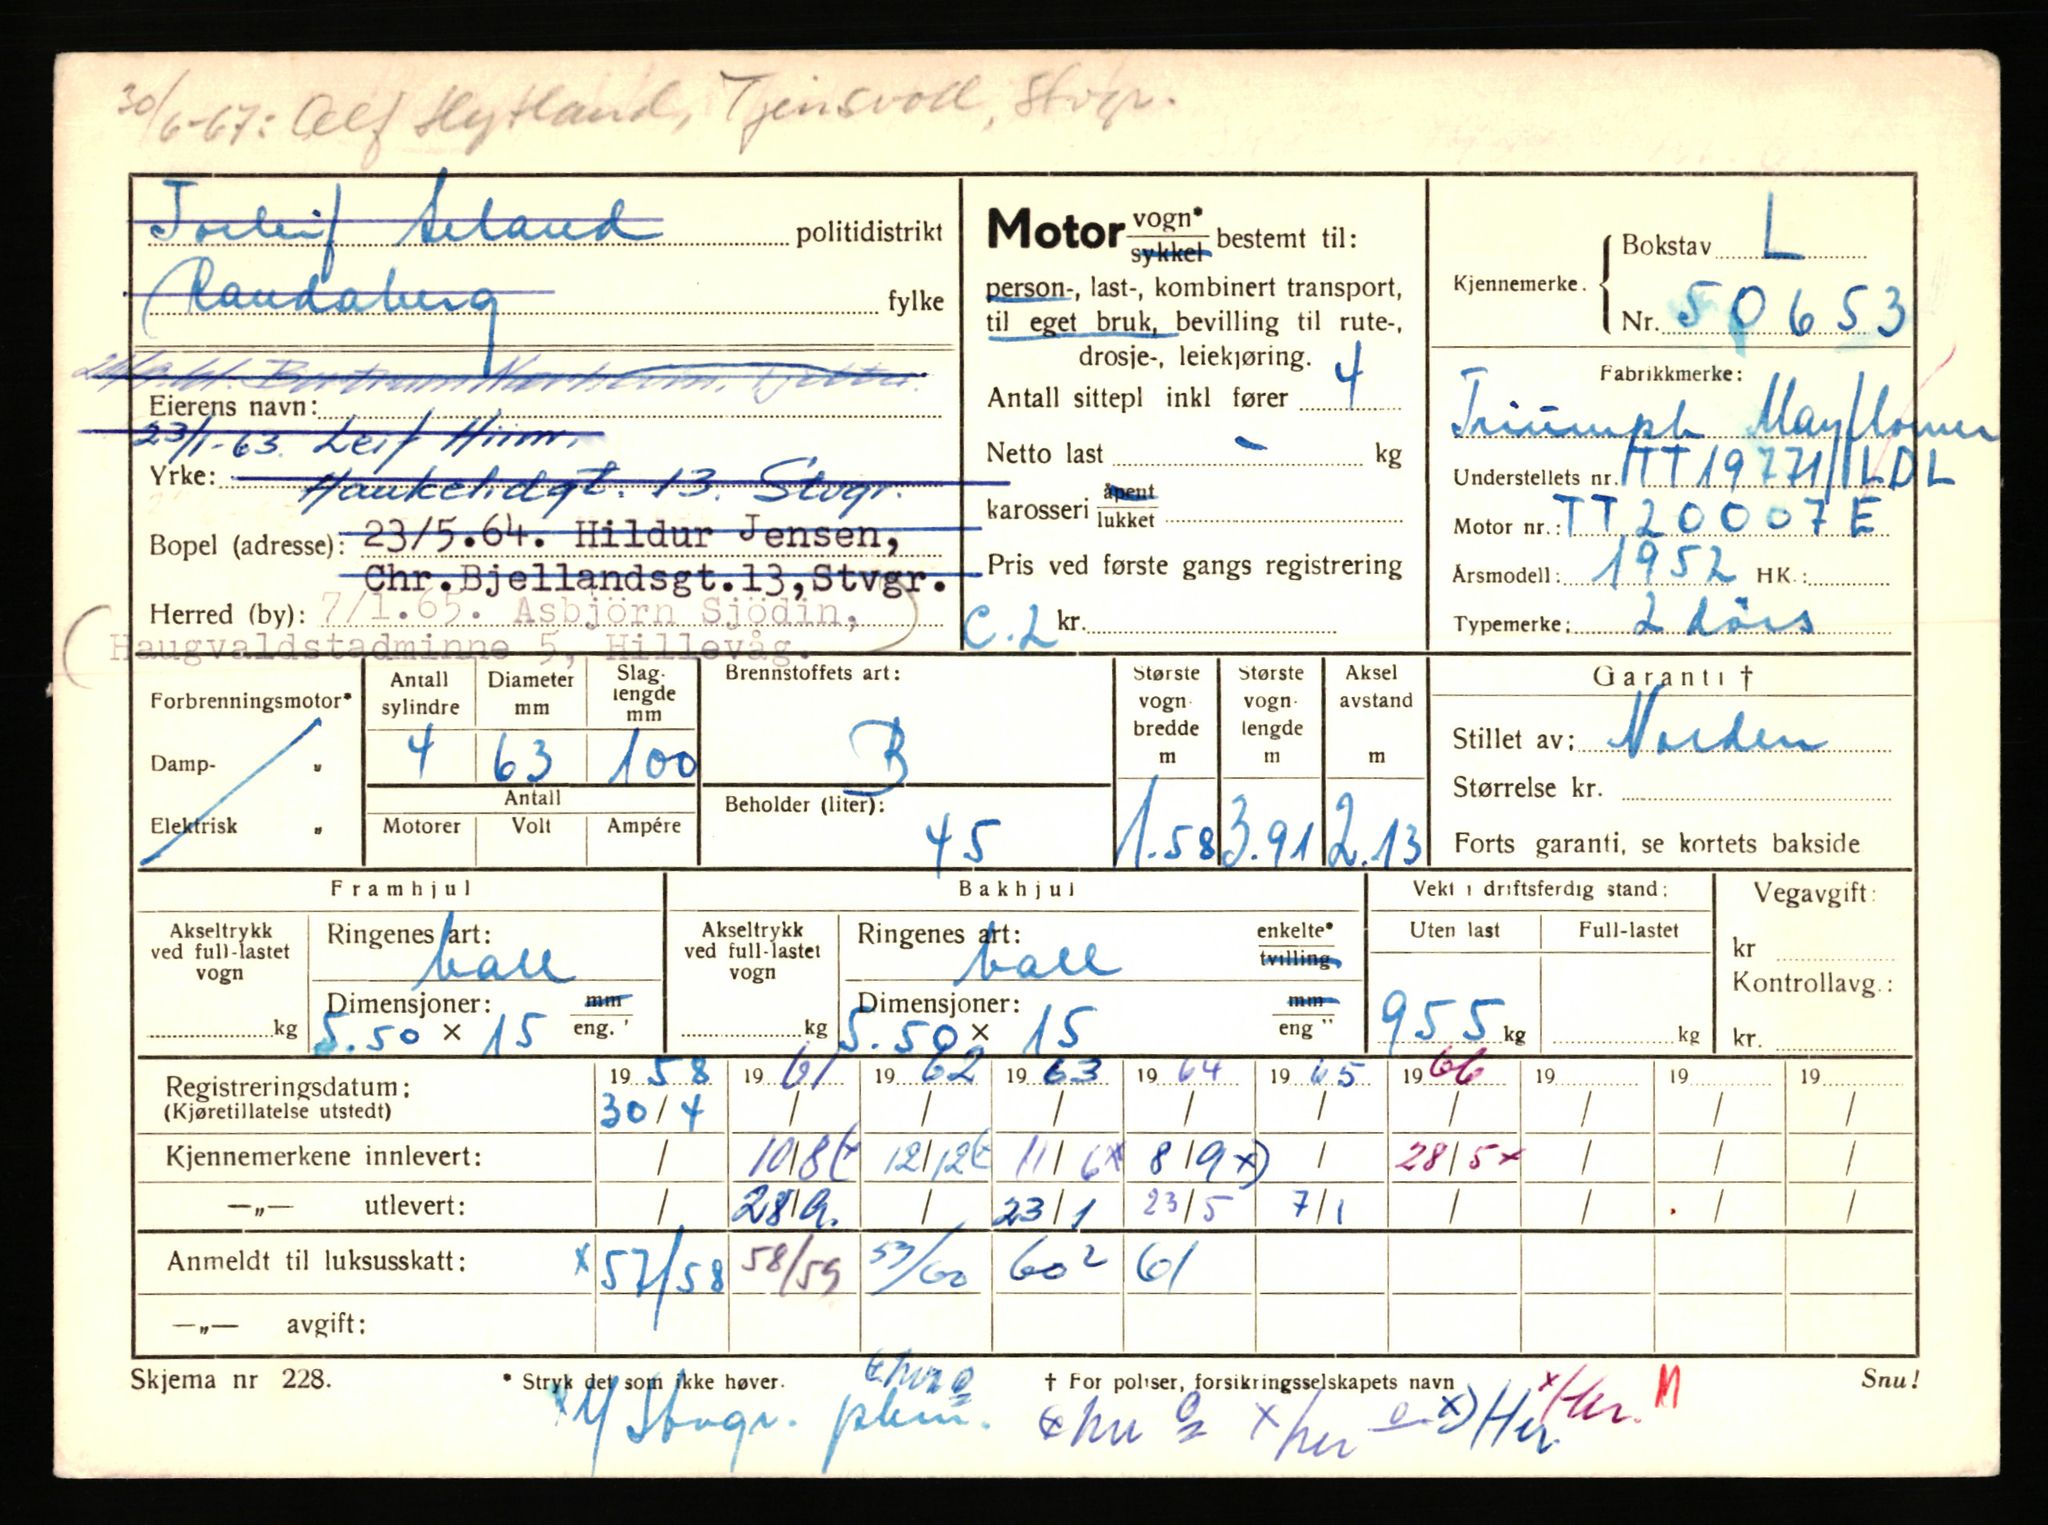 30/6-67: Alf Hytland, Tjensvoll, Stvgr.
Torleif Aeland politidistrikt
Randaberg fylke
Eierens navn:
23/1-63. Leif Hinn.
Yrke: Haukelidgt. 13. Stvgr.
Bopel (adresse): 23/5.64. Hildur Jensen,
Chr.Bjellandsgt.13,Stvgr.
Herred (by): 7/1.65. Asbjörn Sjödin,
Haugvaldstadminne 5, Hillevåg.
Motor vogn* sykkel bestemt til:
person-, last-, kombinert transport,
til eget bruk, bevilling til rute-,
drosje-, leiekjøring.
Antall sittepl inkl fører 4
Netto last - kg
karosseri åpent lukket
Pris ved første gangs registrering
C.2 kr.
Kjennemerke. Bokstav L
Nr. 50653
Fabrikkmerke:
Triumph Mayflower
Understellets nr. TT19771/1LDL
Motor nr.: TT20007E
Årsmodell: 1952 HK.:
Typemerke: 2 dörs
Forbrenningsmotor*
Damp- „
Elektrisk „
Antall sylindre 4
Diameter mm 63
Slag-lengde mm 100
Antall
Motorer Volt Ampére
Brennstoffets art:
B
Beholder (liter):
45
Største vogn-bredde m 1.58
Største vogn-lengde m 3.91
Aksel avstand m 2.13
Garanti †
Stillet av: Norden
Størrelse kr.
Forts garanti, se kortets bakside
Framhjul
Akseltrykk ved full-lastet vogn kg
Ringenes art: ball
Dimensjoner: mm eng. "
5.50 x 15
Bakhjul
Akseltrykk ved full-lastet vogn kg
Ringenes art: ball enkelte* tvilling
Dimensjoner: mm eng "
5.50 x 15
Vekt i driftsferdig stand:
Uten last Full-lastet
955 kg kg
Vegavgift:
kr
Kontrollavg.:
kr.
Registreringsdatum: 1958 1961 1962 1963 1964 1965 1966 19 19 19
(Kjøretillatelse utstedt) 30/4 / / / / / / / / /
Kjennemerkene innlevert: / 10/8 12/12 11/6x 8/9x) / 28/5x / / /
—„— utlevert: / 28/9. / 23/1 23/5 7/1 / / / /
Anmeldt til luksusskatt: x57/58 58/59 59/60 60² 61
—„— avgift:
Skjema nr 228. * Stryk det som ikke høver. † For poliser, forsikringsselskapets navn Snu!
x/ Stvgr. x/her x) Her. x/her. M